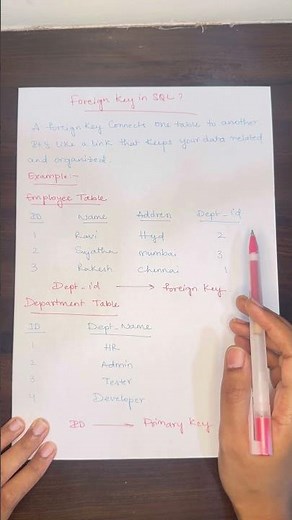 Foreign Key in SQL?
A foreign key connects one table to another
It's like a link that keeps your data related
and organized.
Example:-
Employee Table
ID Name Address Dept_id
1 Ravi Hyd 2
2 Sujatha Mumbai 3
3 Rakesh Chennai 1
Dept_id → foreign key
Department Table
ID Dept_Name
1 HR
2 Admin
3 Tester
4 Developer
ID → Primary Key